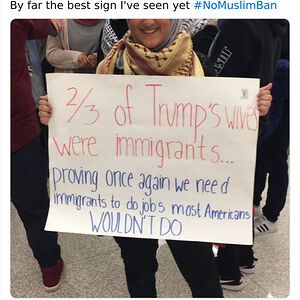 By far the best sign I've seen yet #NoMuslimBan
2/3 of Trump's wives
were immigrants...
proving once again we need
immigrants to do jobs most Americans
WOULDN'T DO